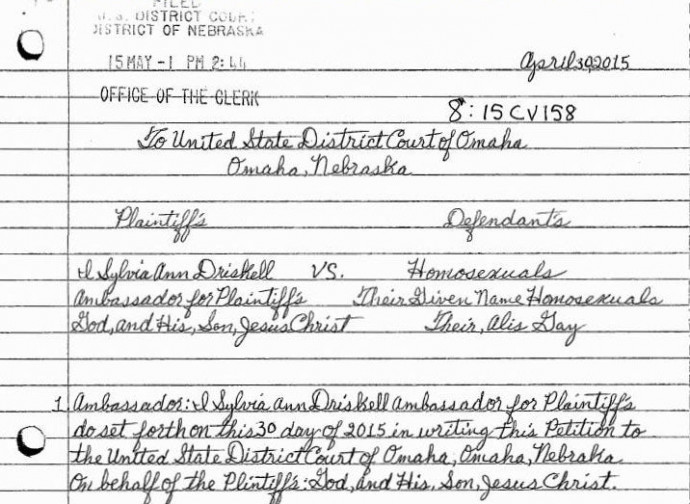 FILED
U.S. DISTRICT COURT
DISTRICT OF NEBRASKA
15 MAY -1 PM 2:44
OFFICE OF THE CLERK
April 30, 2015
8:15CV158
To United State District Court of Omaha
Omaha, Nebraska
Plaintiff's Defendant's
I Sylvia Ann Driskell VS. Homosexuals
Ambassador for Plaintiff's Their Given Name Homosexuals
God, and His, Son, Jesus Christ Their, Alis Gay
1. Ambassador: I Sylvia Ann Driskell Ambassador for Plaintiff's
do set forth on this 30 day of 2015 in writing this Petition to
the United State District Court of Omaha, Omaha, Nebraka.
On behalf of the Plintiff's: God, and His, Son, Jesus Christ.